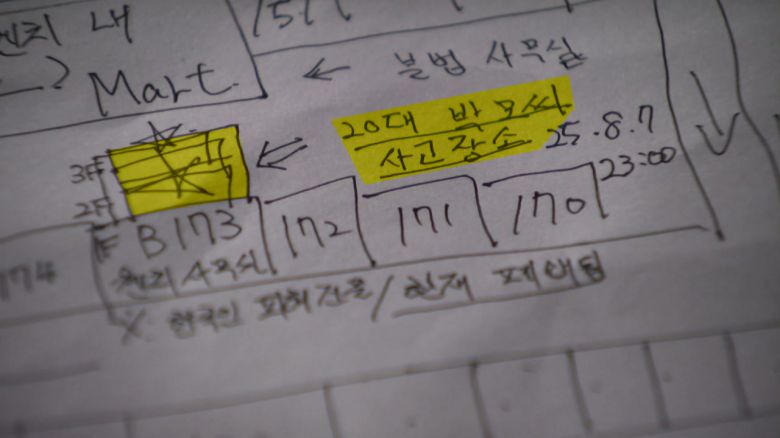 내
151
Mart.
← 불법 사무실
20대 박모씨
사고장소
25.8.7
23:00
3F
2F
F B173
172
171
170
174
관리사무실
※ 한국인 피해건물/현재 폐쇄됨